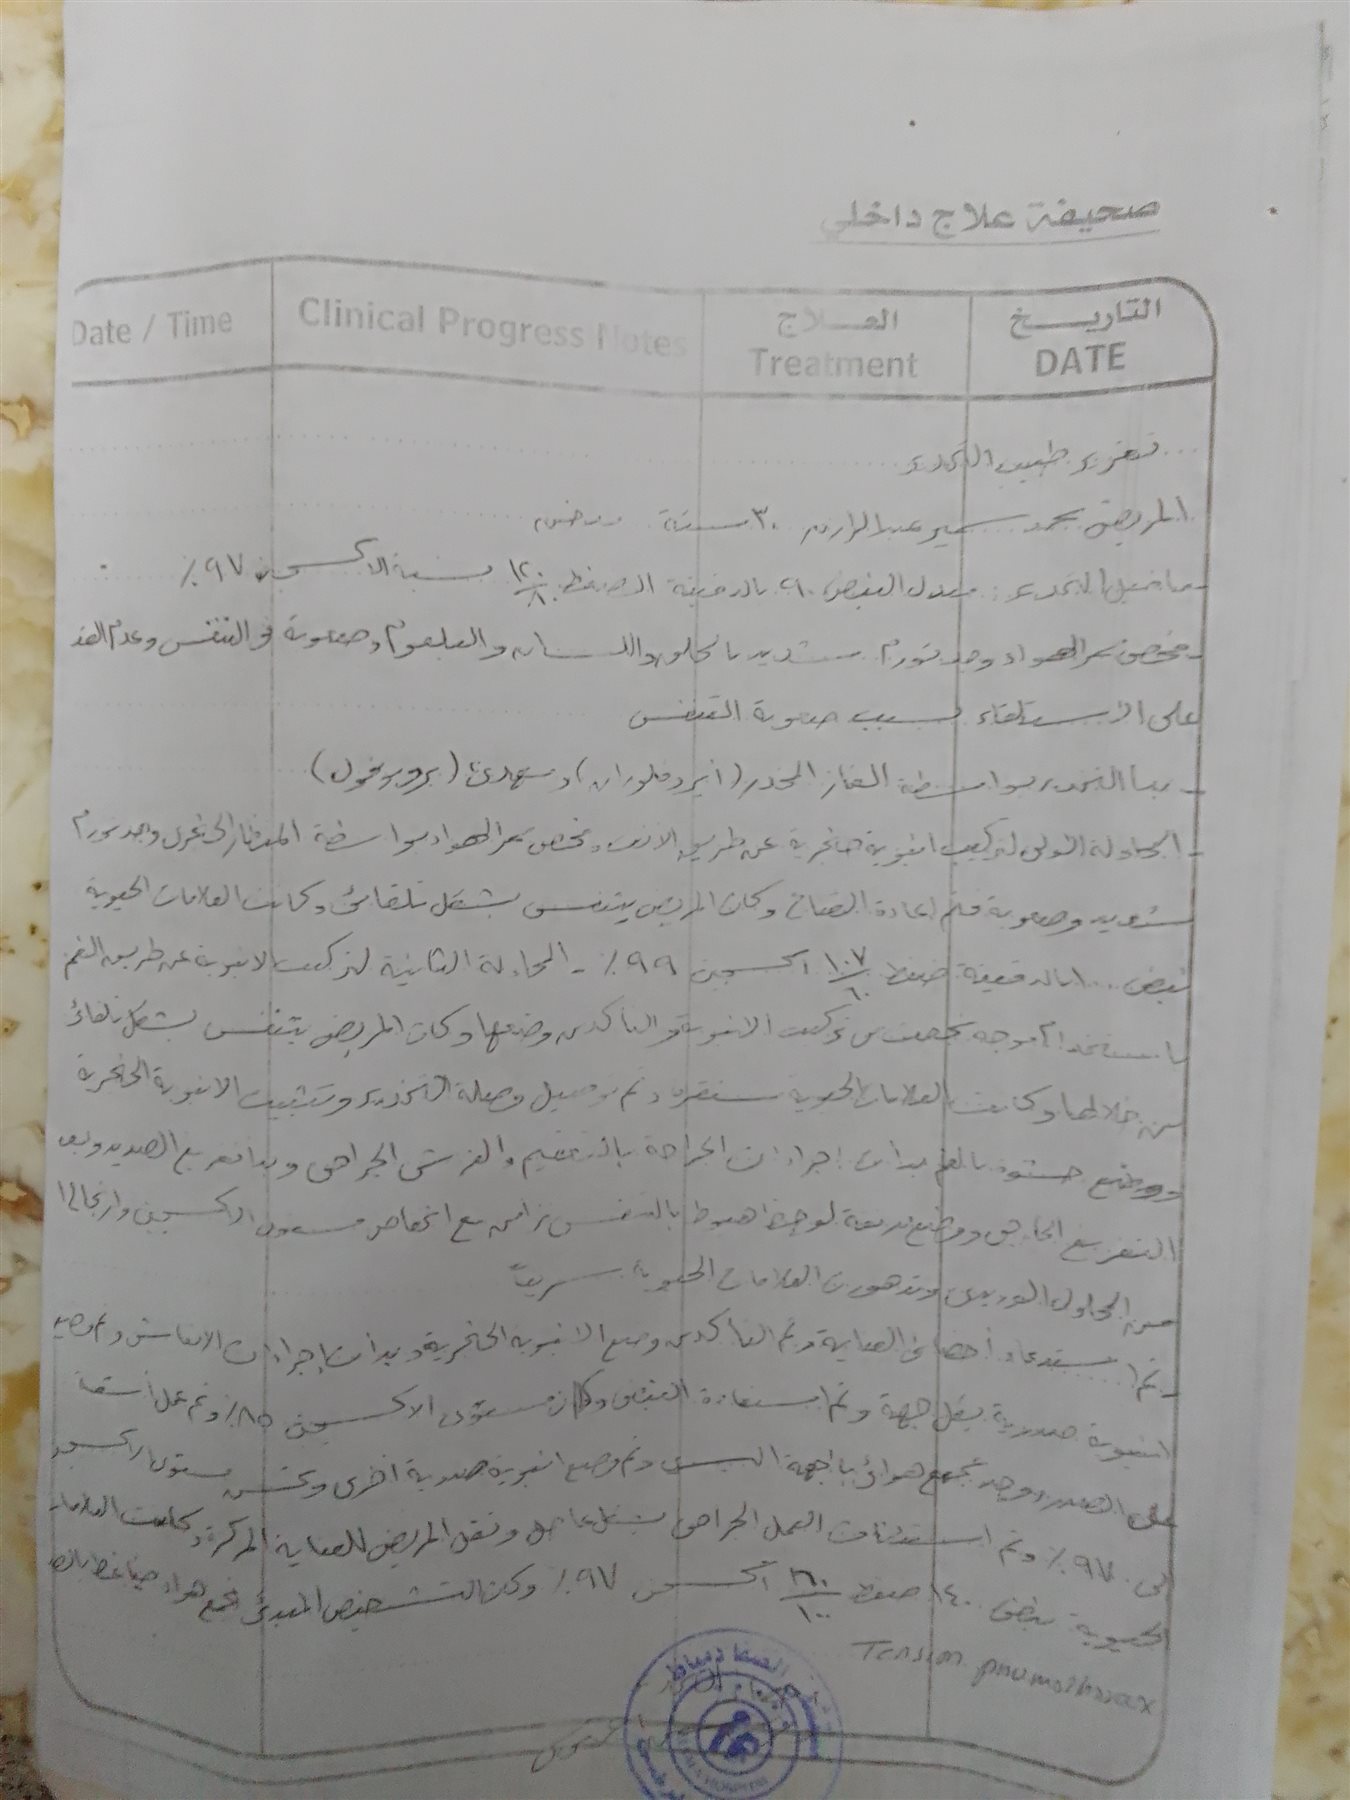 صحيفة علاج داخلي
التاريخ العلاج Clinical Progress Notes Date / Time
DATE Treatment
تقرير طبيب التخدير
المريض محمد سمير عبد الرازق ٣٠ سنة
- ماقبل التخدير : معدل النبض ٩٠ بالدقيقة الضغط ١٢٠/٨٠ نسبة الاكسجين ٩٧٪
- فحص ممر الهواء وجد تورم شديد بالحلق واللسان والبلعوم وصعوبة فى التنفس وعدم القد
على الاستلقاء بسبب صعوبة التنفس
- بدأ التخدير بواسطة الغاز المخدر (ايزوفلوران) ومهدئ (بروبوفول)
- المحاولة الأولى لتركيب انبوبة حنجرية عن طريق الانف وفحص ممر الهواء بواسطة المنظار الحنجرى وجد تورم
شديد وصعوبة فتم اعادة القناع وكان المريض يتنفس بشكل تلقائى وكانت العلامات الحيوية
نبض ١٠٠ بالدقيقة ضغط ١٠٧/٦٠ اكسجين ٩٩٪ - المحاولة الثانية لتركيب الانبوبة عن طريق الفم
باستخدام موجه نجحت فى تركيب الانبوبة والتأكد من وضعها وكان المريض يتنفس بشكل تلقائى
من خلالها وكانت العلامات الحيوية مستقرة وتم توصيل وصلة التخدير وتثبيت الانبوبة الحنجرية
ووضع حشوة بالفم بدأت إجراءات الجراحة بالتعقيم والفرش الجراحى وبدأ تفريغ الصديد وبعد
التفريغ الخارجى ووضع لوحظ هبوط بالتنفس تزامن مع انخفاض مستوى الاكسجين وارتجاع
من المحلول الوريدى وتدهورت العلامات الحيوية سريعاً
- تم استدعاء أخصائى العناية وتم التأكد من وضع الانبوبة الحنجرية وبدأت إجراءات الانعاش وتم وضع
انبوبة صدرية بكل جهة وتم استعادة النبض وكان مستوى الاكسجين ٨٥٪ وتم عمل أشعة
على الصدر ووجد تجمع هوائى بالجهة اليسرى وتم وضع انبوبة صدرية اخرى وتحسن مستوى الاكسجين
الى ٩٧٪ وتم استئناف العمل الجراحى بشكل عاجل ونقل المريض للعناية المركزة وكانت العلامات
الحيوية نبض ١٤٠ ضغط ١٦٠/١٠٠ أكسجين ٩٧٪ وكان التشخيص المبدئى تجمع هواء ضاغط بالصدر
Tension pnumothorax